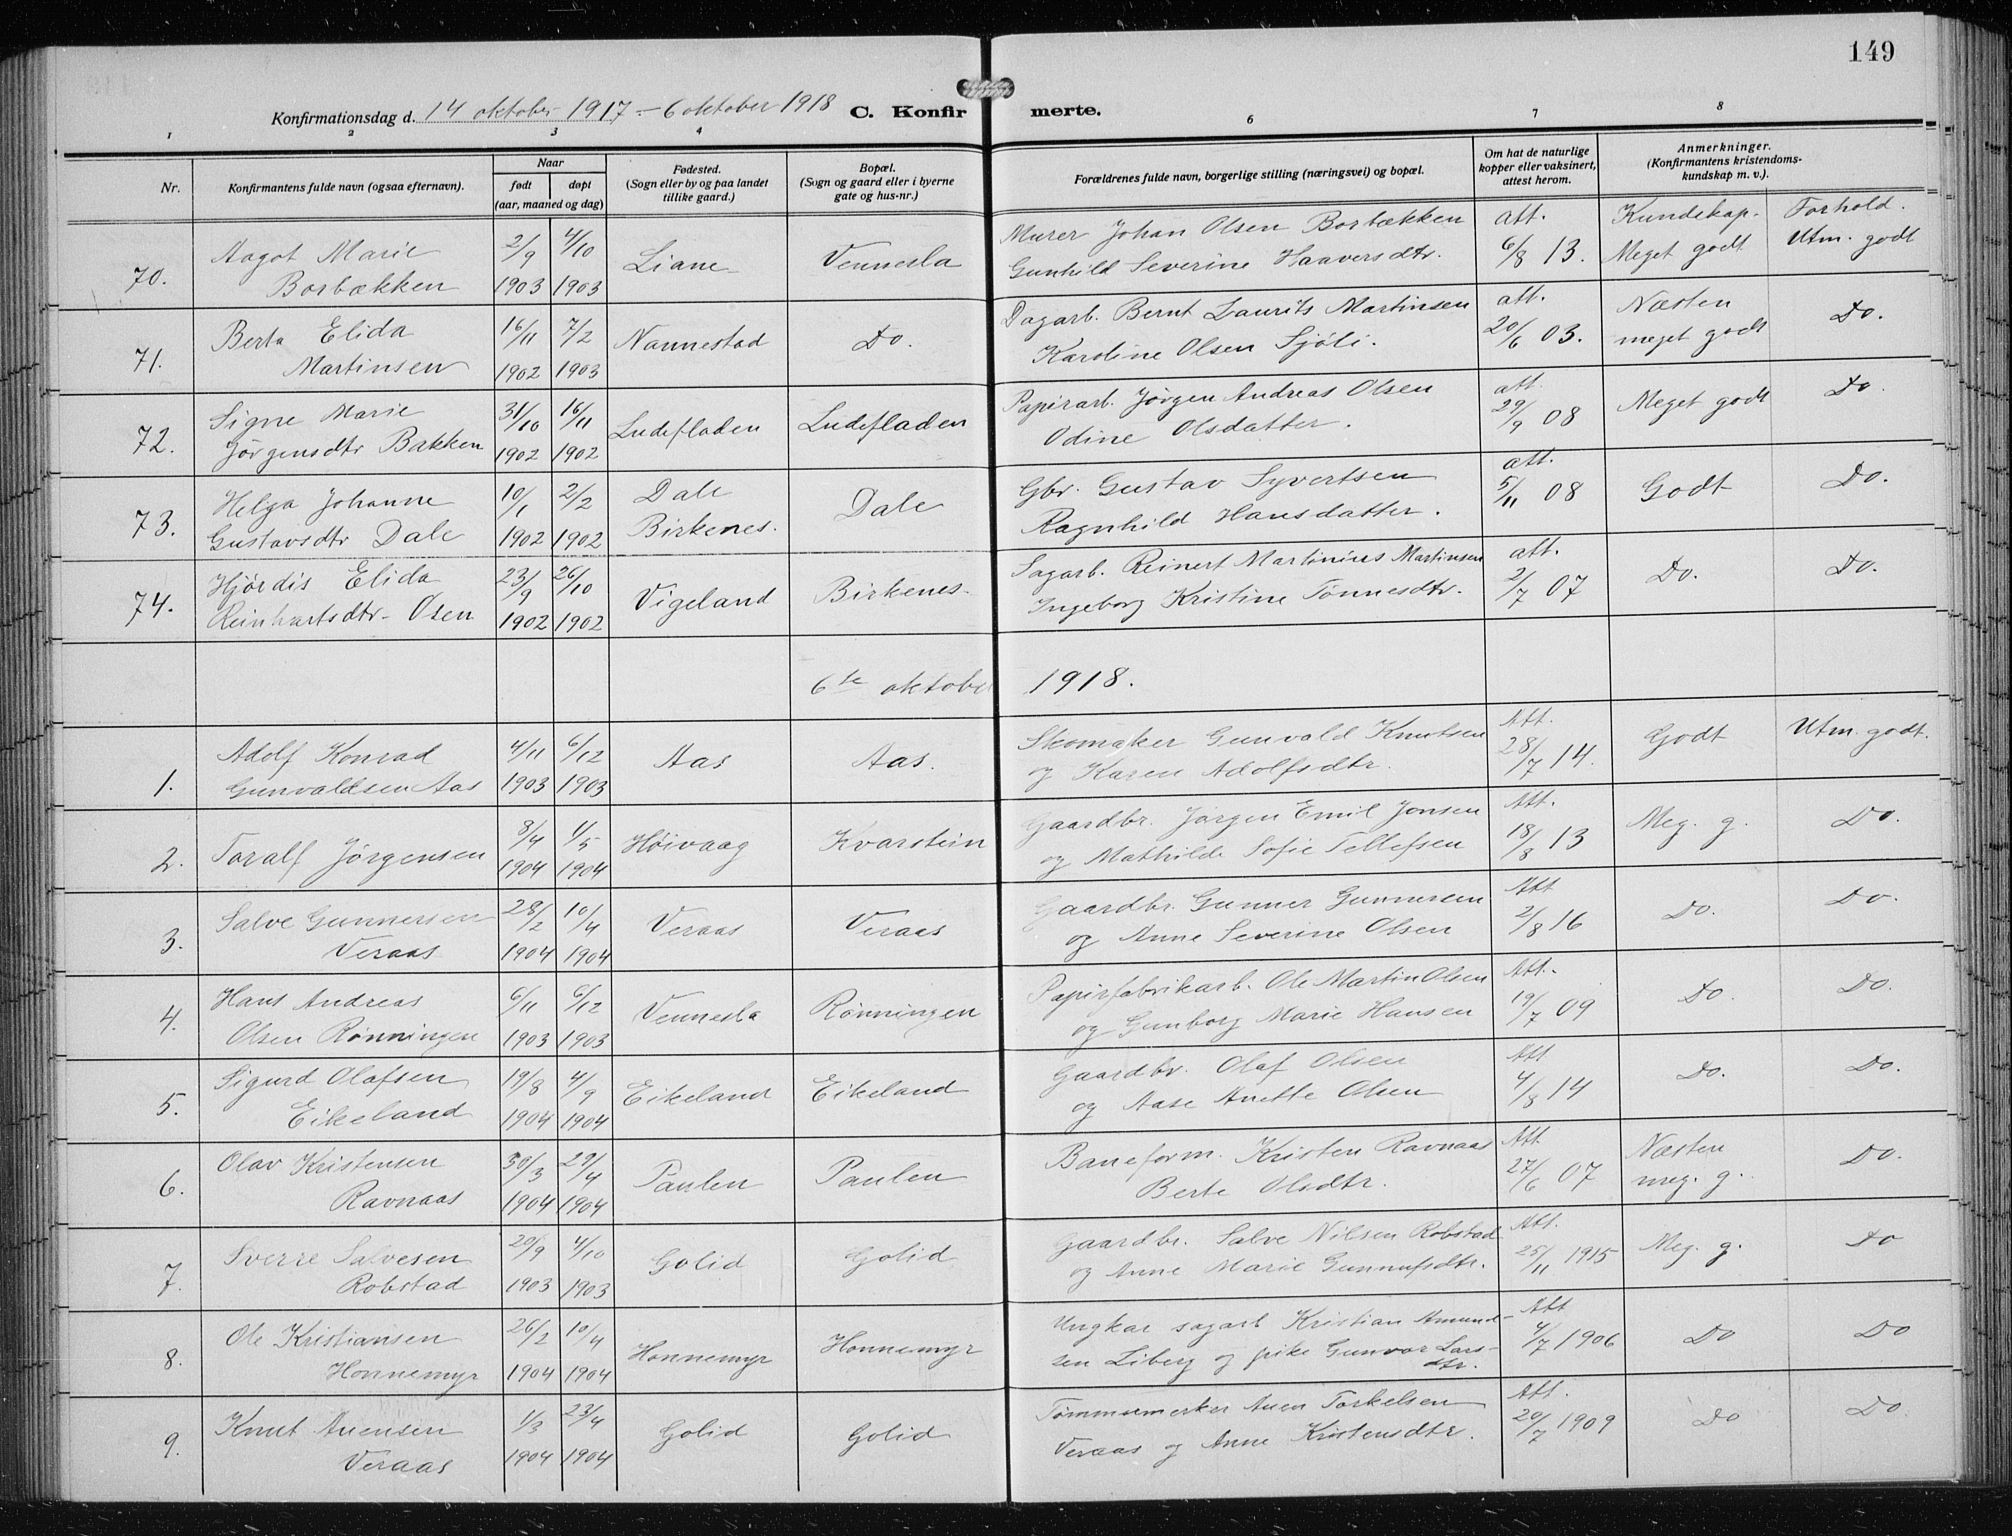 149
Konfirmationsdag d. 14 oktober 1917 – 6 oktober 1918 C. Konfirmerte.
1 2 3 4 6 7 8
Nr.
Konfirmantens fulde navn (ogsaa efternavn).
Naar
født døpt
(aar, maaned og dag)
Fødested.
(Sogn eller by og paa landet
tillike gaard.)
Bopæl.
(Sogn og gaard eller i byerne
gate og hus-nr.)
Forældrenes fulde navn, borgerlige stilling (næringsvei) og bopæl.
Om hat de naturlige
kopper eller vaksinert,
attest herom.
Anmerkninger.
(Konfirmantens kristendoms-
kundskap m. v.).
Kundskap. Forhold.
70. Aagot Marie 2/9 4/10 Liane Vennesla Murer Johan Olsen Borbækken att.
Borbækken 1903 1903 Gunhild Severine Haaversdtr. 6/8 13. Meget godt Utm. godt
71. Berta Elida 16/11 7/2 Nannestad Do. Dagarb. Bernt Laurits Martinsen att. Næsten Do.
Martinsen 1902 1903 Karoline Olsen Sjøli. 20/6 03. meget godt
72. Signe Marie 31/10 16/11 Ludefladen Ludefladen Papirarb. Jørgen Andreas Olsen att. Meget godt Do.
Jørgensdtr Bakken 1902 1902 Odine Olsdatter. 29/9 08
73. Helga Johanne 10/1 2/2 Dale Dale Gbr. Gustav Syvertsen att. Godt Do.
Gustavsdtr Dale 1902 1902 Birkenes. Ragnhild Hansdatter. 5/11 08
74. Hjørdis Elida 23/9 26/10 Vigeland Birkenes Sagarb. Reinert Martinius Martinsen att. Do. Do.
Reinhartsdtr- Osen 1902 1902 Ingeborg Kristine Tønnesdtr. 2/7 07
6te oktober 1918.
1. Adolf Konrad 4/11 6/12 Aas Aas. Skomaker Gunvald Knutsen Att. Godt Utm. godt.
Gunvaldsen Aas 1903 1903 og Karen Adolfsdtr. 28/7 14.
2. Toralf Jørgensen 8/4 1/5 Høivaag Kvarstein Gaardbr. Jørgen Emil Jonsen Att. Meg. g. Do.
1904 1904 og Mathilde Sofie Tellefsen 18/8 13
3. Salve Gunnersen 28/2 10/4 Veraas Veraas Gaardbr. Gunner Gunnersen Att Do. Do.
Veraas 1904 1904 og Anne Severine Olsen 2/8 16
4. Hans Andreas 6/11 6/12 Vennesla Rønningen Papirfabrikarb. Ole Martin Olsen Att. Do. Do.
Olsen Rønningen 1903 1903 og Gunborg Marie Hansen 19/7 09
5. Sigurd Olafsen 19/8 4/9 Eikeland Eikeland Gaardbr. Olaf Olsen Att Do. Do.
Eikeland 1904 1904 og Aase Anette Olsen 4/8 14
6. Olav Kristensen 30/3 29/4 Paulen Paulen Baneform. Kristen Ravnaas Att Næsten Do.
Ravnaas 1904 1904 Berte Olsdtr. 27/6 07 meg. g.
7. Sverre Salvesen 20/9 4/10 Golid Golid Gaardbr. Salve Nilsen Robstad Att. Meg. g. Do
Robstad 1903 1903 og Anne Marie Gunnufsdtr. 25/11 1915
8. Ole Kristiansen 26/2 10/4 Honnemyr Honnemyr Ungkar sagarb Kristian Amund- Att Do Do
Honnemyr 1904 1904 sen Liberg og pike Gunvor Lars- 4/7 1906
dtr.
9. Knut Auensen 1/3 23/4 Golid Golid Tømmermerker Auen Torkelsen Att. Do Do.
Veraas 1904 1904 Veraas og Anne Kristensdtr. 20/7 1909